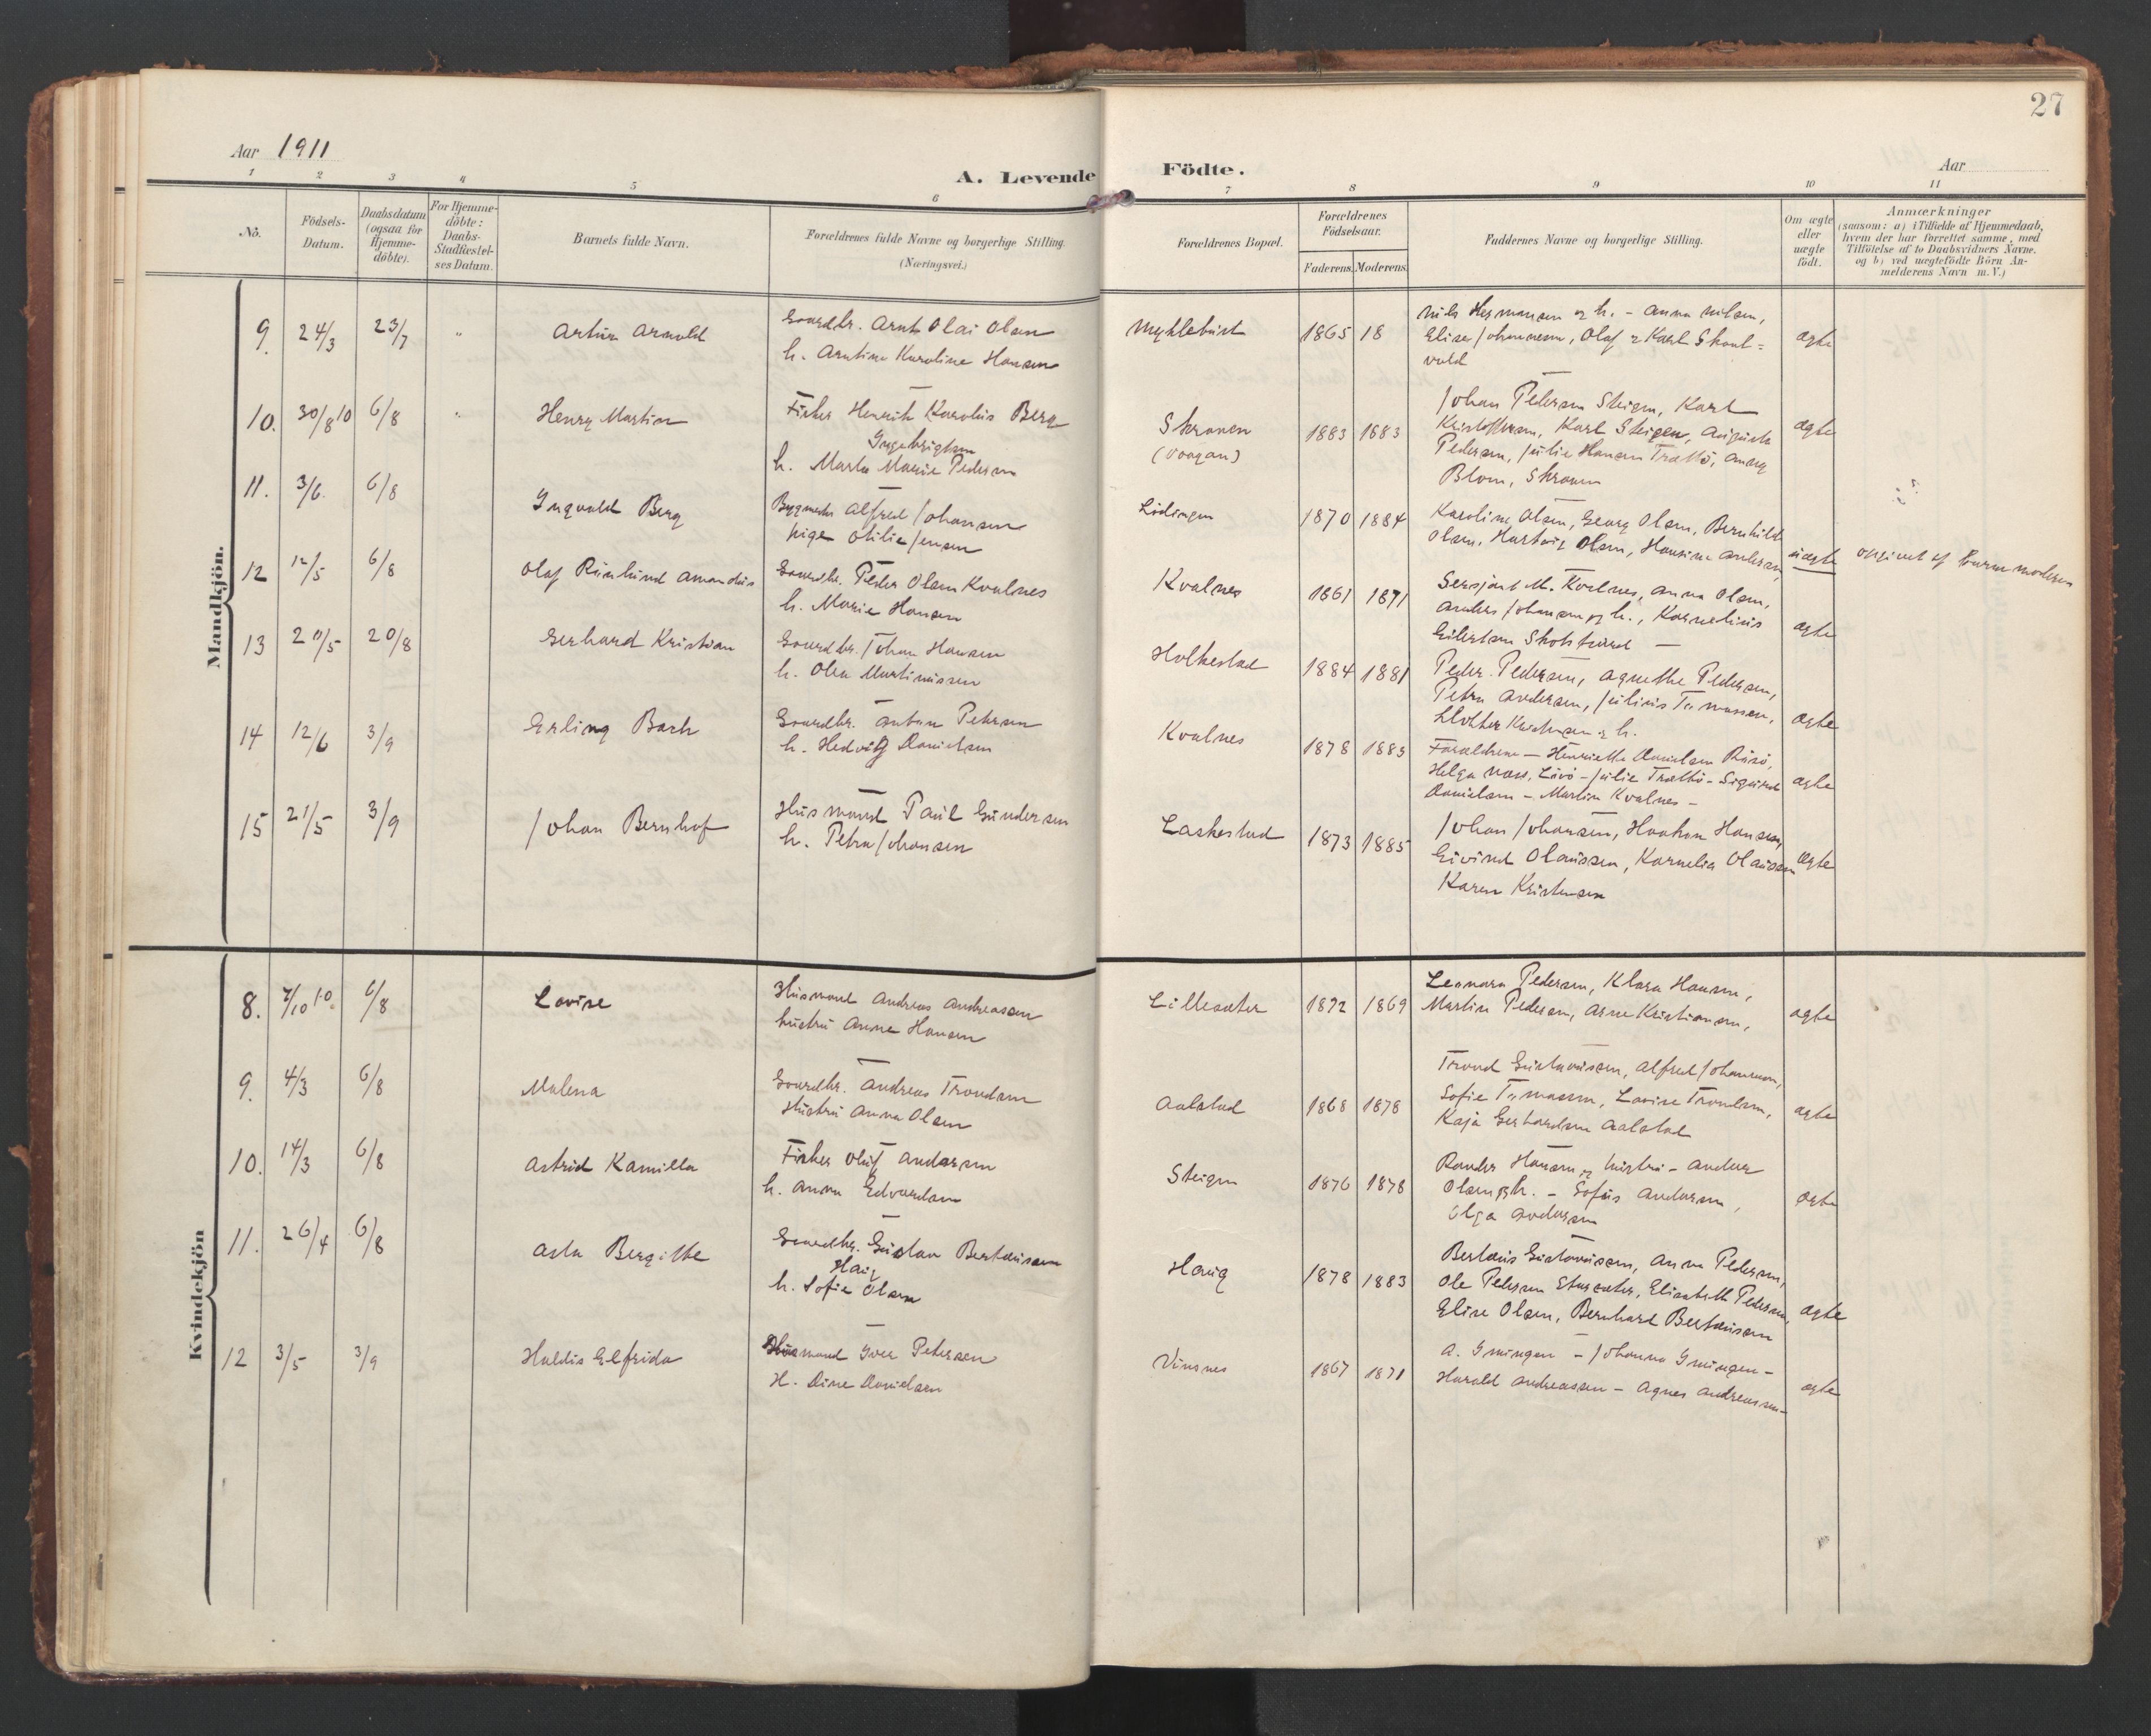 27
Aar 1911
A. Levende Födte.
Aar
1 2 3 4 5 6 7 8 9 10 11
No.
Födsels-
Datum.
Daabsdatum
(ogsaa for
Hjemme-
döbte).
For Hjemme-
döbte:
Daabs-
Stadfæstel-
ses Datum.
Barnets fulde Navn.
Forældrenes fulde Navne og borgerlige Stilling.
(Næringsvei.)
Forældrenes Bopæl.
Forældrenes
Födselsaar.
Faderens. Moderens.
Faddernes Navne og borgerlige Stilling.
Om ægte
eller
uægte
födt.
Anmærkninger
(saasom: a) i Tilfælde af Hjemmedaab,
hvem der har forrettet samme, med
Tilföielse af to Daabsvidners Navne.
og b) ved uægtefödte Börn An-
melderens Navn m. V.)
Mandkjön.
9. 24/3 23/7 " Artur Arnold
Gaardbr. Arnt Olai Olsen
h. Arntine Karoline Hansen
Myklebust 1865 18
Nils Hermansen og h. - Anna Nilsen,
Elise Johannesen, Olaf og Karl Skont=
vold
ægte
10. 30/8 10 6/8 " Henry Martin
Fisker Henrik Karolius Berg
Ingebrigtsen
h. Marta Marie Pedersen
Skroven
(Vaagan)
1883 1883
Johan Pedersen Steigen, Karl
Kristoffersen, Karl Steigen, Augusta
Pedersen, Julie Hansen Trættö, Anny
Blom, Skroven
ægte
11. 3/6 6/8 Ingvald Berg
Bygmester Alfred Johansen
pige Otilie Jensen
Lödingen 1870 1884
Karoline Olsen, Georg Olsen, Bernhild
Olsen, Hartvig Olsen, Hansine Andersen,
uægte
opgivet af barnemoderen
12 12/5 6/8 Olaf Runlund Amandus
Gaardbr. Peder Olsen Kvalnes
h. Marie Hansen
Kvalnes 1861 1871
Sersjant M. Kvalnes, Anna Olsen,
Anders Johansen og h., Kornelius
Eilertsen Skotstund —
ægte
13 20/5 20/8 Gerhard Kristian
Gaardbr. Johan Hansen
h. Olea Martinussen
Holkestad 1884 1881
Peder Pedersen, Agnethe Pedersen,
Petra Andersen, Julius Tomassen,
Klokker Kristensen og h.
ægte
14 12/6 3/9 Erling Bach
Gaardbr. Anton Petersen
h. Hedvig Danielsen
Kvalnes 1878 1883
Forældrene — Henriette Danielsen Rösö,
Helga Næss, Lövö - Julie Trættö - Sigurd
Danielsen - Martin Kvalnes -
ægte
15 21/5 3/9 Johan Bernhof
Husmand Paul Gundersen
h. Petra Johansen
Laskestad 1873 1885
Johan Johansen, Haakon Hansen,
Eivind Olaussen, Kornelia Olaussen
Karen Kristensen
ægte
Kvindekjön
8. 7/10 10. 6/8 Lovise
Husmand Andreas Andreassen
hustru Anne Hansen
Lillesæter 1872 1869
Leonara Pedersen, Klara Hansen,
Martin Pedersen, Arne Kristiansen,
ægte
9. 4/3 6/8 Malena
Gaardbr. Andreas Trondsen
Hustru Anna Olsen
Aalstad 1868 1878
Trond Gustavussen, Alfred Johannesen,
Sofie Tomassen, Lovise Trondsen,
Kaja Gerhardsen Aalstad
ægte
10. 14/3 6/8 Astrid Kamilla
Fisker Oluf Andersen
h. Anna Edvardsen
Steigen 1876 1878
Rander Hansen og hustru - Anders
Olsen og h. - Sofus Andersen,
Olga Andersen
ægte
11. 26/4 6/8 Asta Bergitte
Gaardbr. Gustav Bertæussen
Haug
h. Sofie Olsen
Haug 1878 1883
Bertæus Gustavussen, Anna Pedersen,
Ole Pedersen Storsæter, Elisabeth Pedersen,
Elise Olsen, Bernhard Bertæussen
ægte
12 3/5 3/9 Haldis Elfrida
Husmand Iver Petersen
H. Dine Danielsen
Vinsnes 1867 1871
A. Gmingen - Johanna Gmingen -
Harald Andreassen - Agnes Andreassen -
ægte